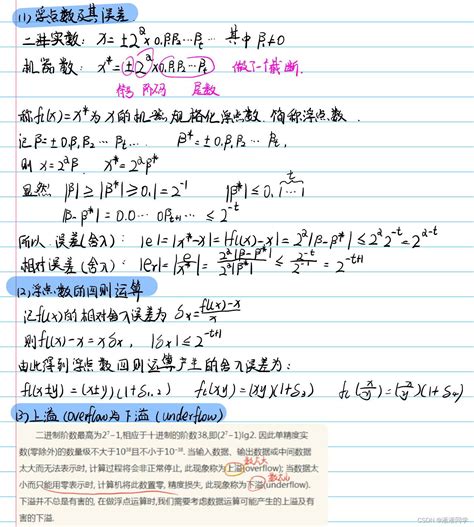 (1) 浮点数及其误差
二进实数: x = ±2^a × 0.β₁β₂⋯βₜ⋯ 其中 β₁≠0
机器数: x* = ±2^a × 0.β₁β₂⋯βₜ 做了一个截断.
符号 阶码 尾数
称fl(x)=x*为x的机器规格化浮点数, 简称浮点数
记β=±0.β₁β₂⋯βₜ⋯ β*=±0.β₁β₂⋯βₜ,
则 x=2^aβ x*=2^aβ*
显然 |β|≥|β*|≥0.1=2^-1 |β*|≤0.1⋯1 t
|β-β*|=0.0⋯0βₜ₊₁⋯ ≤2^-t
所以 误差(舍入): |e|=|x*-x|=|fl(x)-x|=2^a|β-β*|≤2^a 2^-t=2^a-t
相对误差(舍入): |er|=|e/x*|=2^a|β-β*|/2^a|β*|≤2^-t/2^-1=2^-t+1
(2) 浮点数的四则运算
记fl(x)的相对舍入误差为 δx=fl(x)-x/x
则fl(x)-x=xδx, |δx|≤2^-t+1
由此得到浮点数四则运算产生的舍入误差为:
fl(x±y)=(x±y)(1+δ₁,₂) fl(xy)=(xy)(1+δ₃) fl(x/y)=(x/y)(1+δ₄)
(3) 上溢(overflow)与下溢(underflow)
二进制阶数最高为2^7-1,相应于十进制的阶数38,即(2^7-1)lg2. 因此单精度实
数(零除外)的数量级不大于10^38且不小于10^-38. 当输入数据、输出数据或中间数据
数太大
太大而无法表示时, 计算过程将会非正常停止, 此现象称为上溢(overflow); 当数据太
数太小
小而只能用零表示时, 计算机将此数置零, 精度损失, 此现象称为下溢(underflow).
下溢并不总是有害的. 在做浮点运算时,我们需要考虑数据运算可能产生的上溢及有
害的下溢.